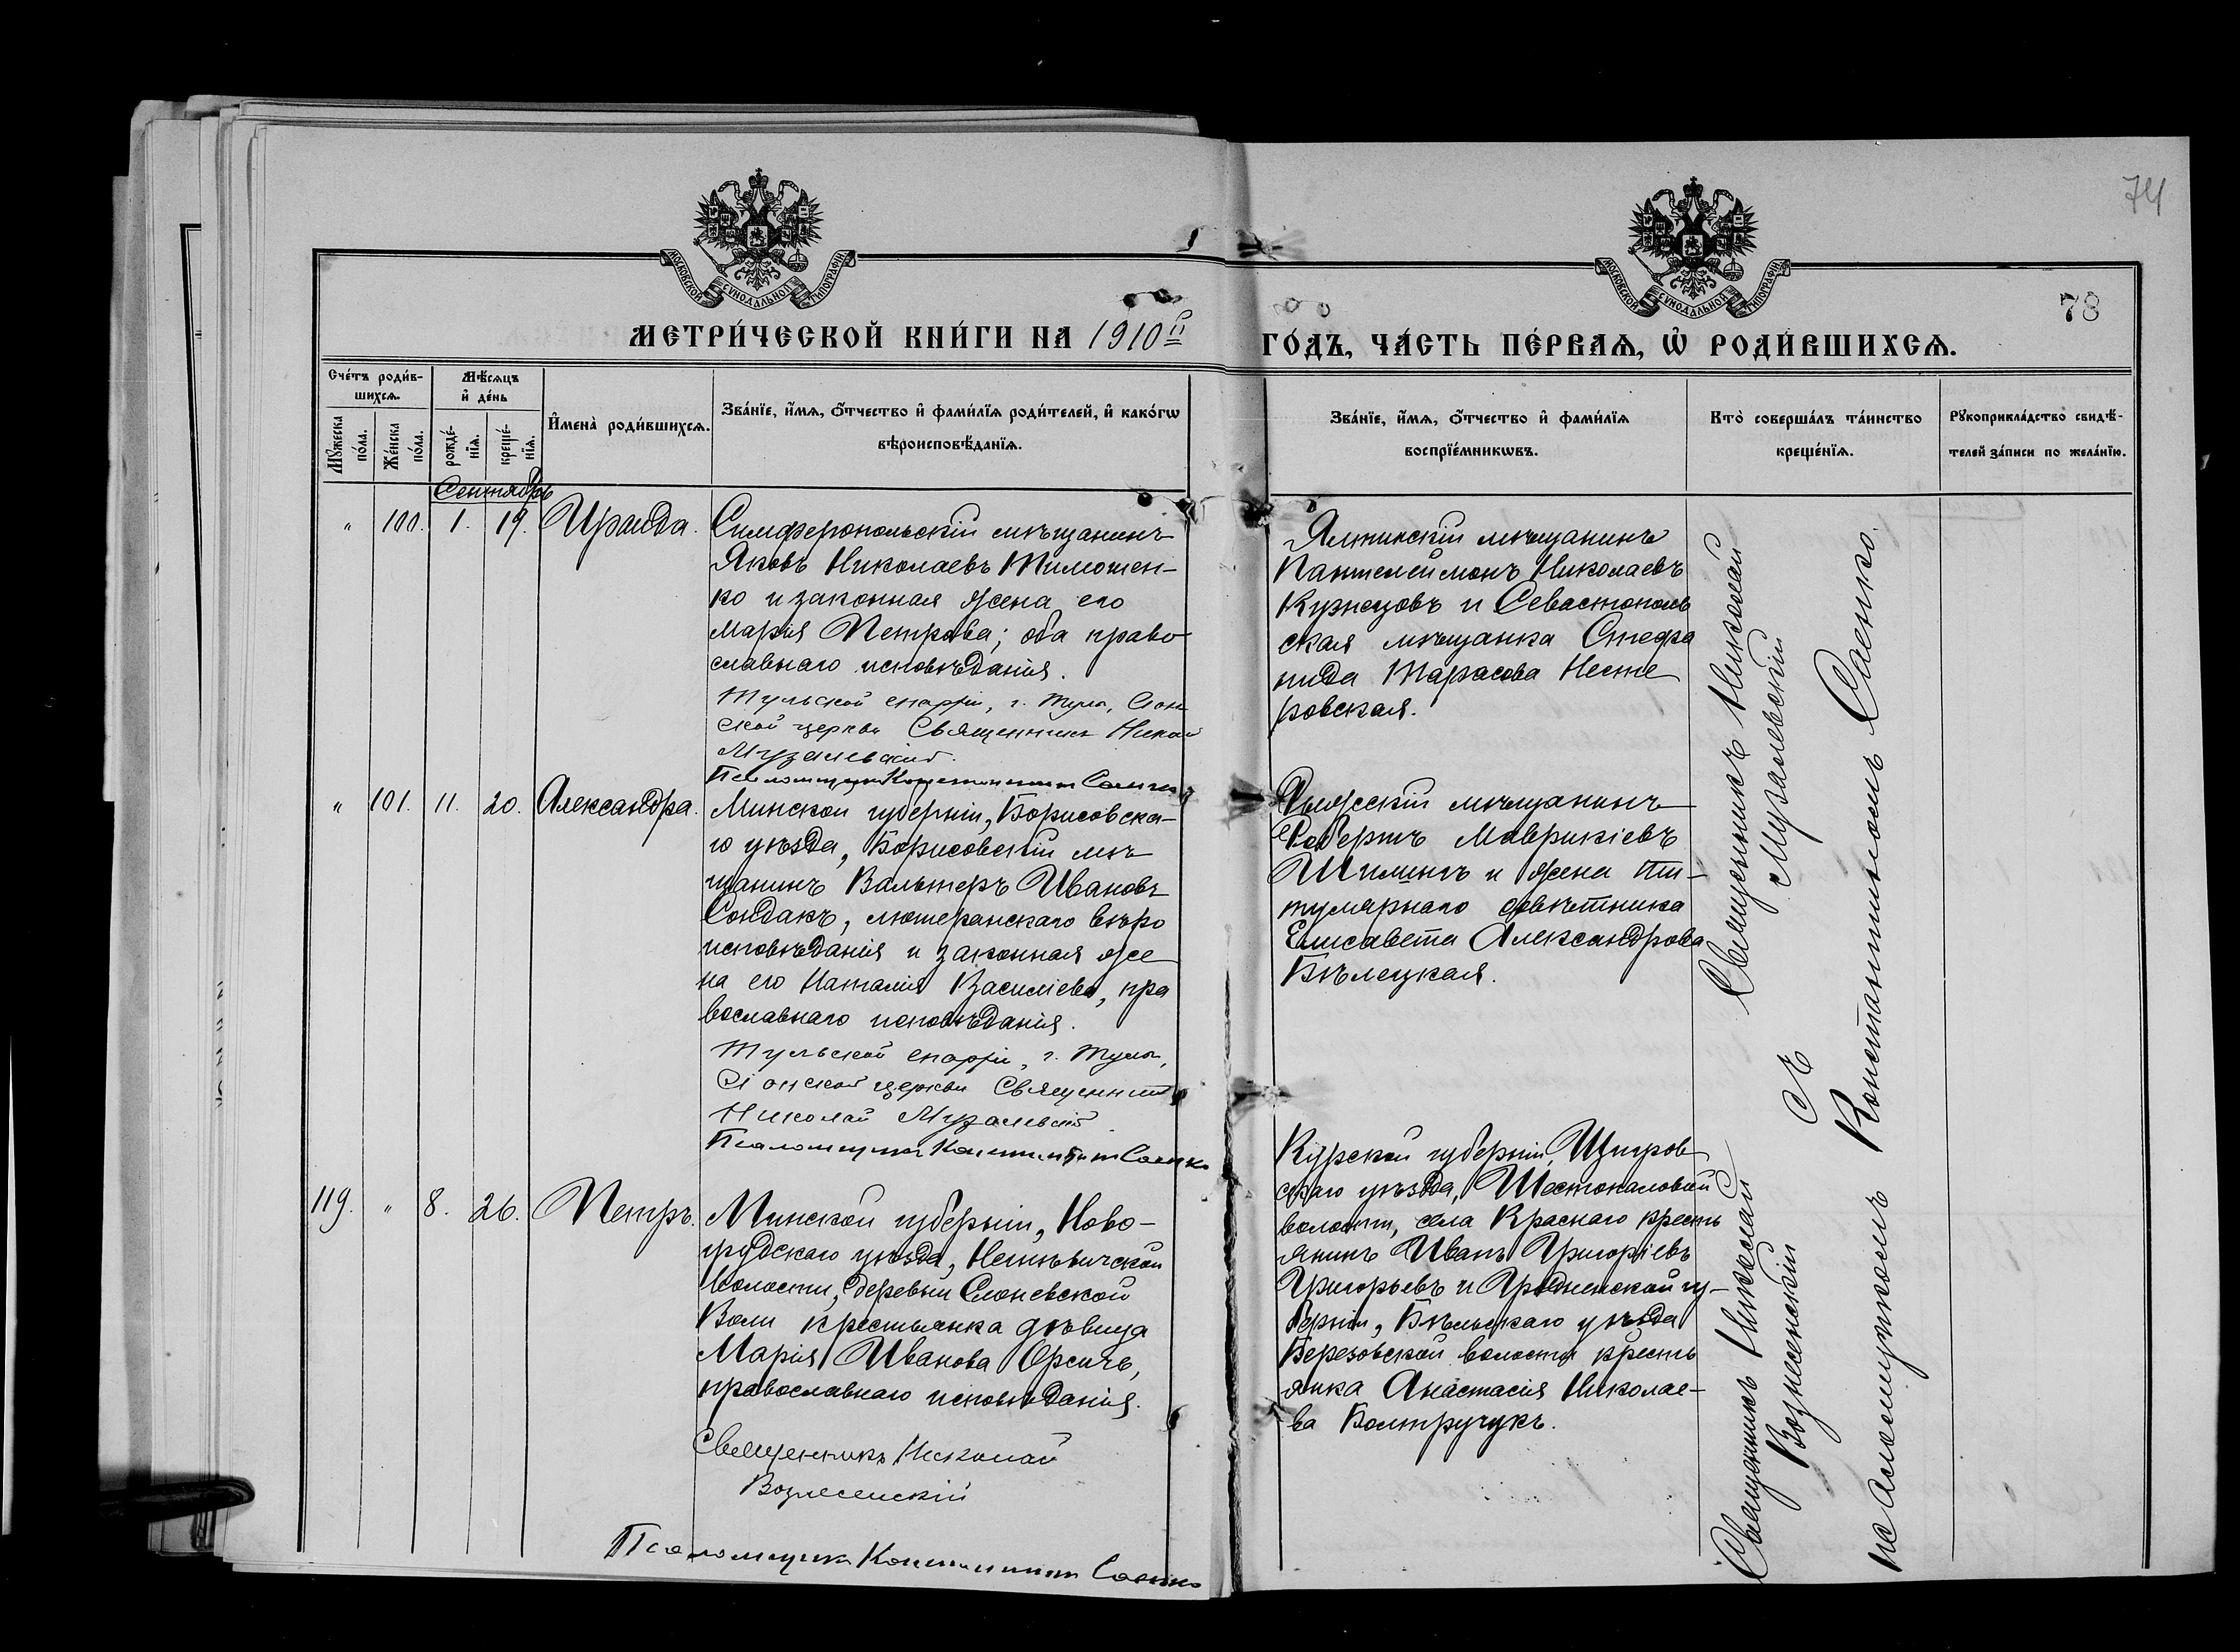 74
78
МОСКОВСКОЙ СѴНОДАЛЬНОЙ ТИПОГРАФІИ
МОСКОВСКОЙ СѴНОДАЛЬНОЙ ТИПОГРАФІИ
МЕТРИ́ЧЕСКОЙ КНИ́ГИ НА 1910 й
ГО́ДЪ, ЧА́СТЬ ПЕ́РВАѦ, Ѡ҆ РОДИ́ВШИХСѦ.
Сче́тъ роди́в-
шихсѧ.
Мꙋ́жеска по́ла.
Же́нска по́ла.
Мѣ́сѧцъ
и҆ де́нь
рожде́-
нїѧ.
креще́-
нїѧ.
И҆мена̀ роди́вшихсѧ.
Зва́нїе, и҆́мѧ, ѻ҆́тчество и҆ фами́лїѧ роди́телей, и҆ како́гѡ
вѣроисповѣ́данїѧ.
Зва́нїе, и҆́мѧ, ѻ҆́тчество и҆ фами́лїѧ
воспрїе́мникѡвъ.
Кто̀ соверша́лъ та́инство
креще́нїѧ.
Рꙋкоприкла́дство свидѣ́-
телей за́писи по жела́нїю.
Сентябрь
" 100. 1. 19. Ираида.
Симферопольскій мѣщанинъ
Яковъ Николаевъ Тимошен-
ко и законная жена его
Марія Петрова; оба право
славнаго исповѣданія.
Тульской епархіи, г. Тулы, Сіон
ской церкви Священникъ Никол
Музалевскій.
Псаломщикъ Константинъ Саенко
Ялтинскій мѣщанинъ
Пантелеимонъ Николаевъ
Кузнецовъ и Севастополь
ская мѣщанка Стефа
нида Тарасова Несте
ровская.
Священникъ Николай
Музалевскій
" 101. 11. 20. Александра.
Минской губерніи, Борисовска-
го уѣзда, Борисовскій мѣ
щанинъ Вальтеръ Ивановъ
Сондакъ, лютеранскаго вѣро
исповѣданія и законная же
на его Наталія Василіева, пра
вославнаго исповѣданія.
Тульской епархіи, г. Тулы,
Сіонской церкви Священникъ
Николай Музалевскій
Псаломщикъ Константинъ Саенко
мѣщанинъ
Робертъ Маврикіевъ
и жена ти-
тулярнаго совѣтника
Елисавета Александрова
Бѣлецкая.
119. " 8. 26. Петръ.
Минской губерніи, Ново-
грудскаго уѣзда,
волости, деревни
Воли крестьянка дѣвица
Марія Иванова Орсичъ,
православнаго исповѣданія.
Священникъ Николай
Вознесенскій
Псаломщикъ Константинъ Саенко
Курской губерніи, Щигров
скаго уѣзда,
волости, села Краснаго кресть
янинъ Иванъ Григоріевъ
Григорьевъ и Гродненской гу-
берніи, Бѣльскаго уѣзда
Березовской волости кресть
янка Анастасія Николае-
ва Болтручукъ.
Священникъ Николай
Вознесенскій
съ
псаломщикомъ Константиномъ Саенко.